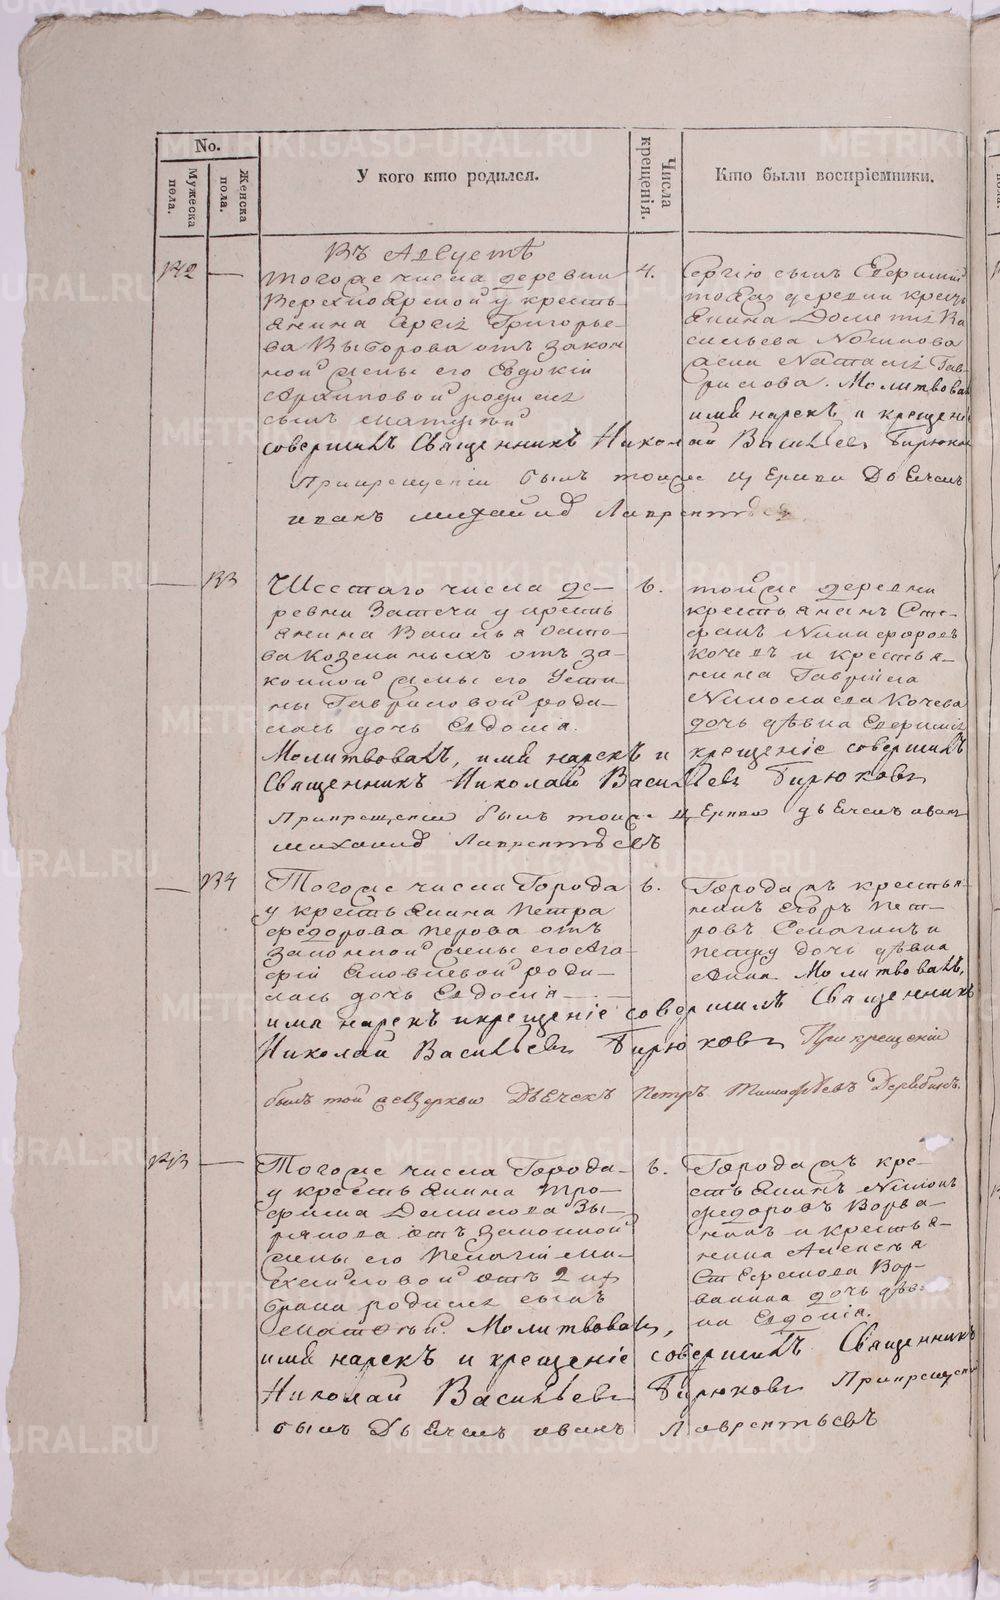 No.
Мужеска пола.
Женска пола.
У кого кто родился.
Числа крещенія.
Кто были воспріемники.
Въ Августѣ
132
тогоже числа деревни
у кресть
янина Григорье
ва Выборова отъ закон
ной жены его Евдокіи
родился
сынъ Матфей
4.
тояже деревни крест
янина
сильева
Гав
рилова. Молитвовал
имя нарекъ и крещеніе
совершилъ Священникъ Николай Васильевъ Бирюков
При крещеніи былъ тойже церкви Дьячекъ
иванъ михайлов Лаврентьев
133
Шестаго числа де-
ревни Затечи у кресть
янина Василья
ва Козминыхъ отъ за-
конной жены его Усти-
ньи Гавриловой роди-
лась дочь Евдокия.
6.
тойже деревни
крестьянинъ Сте-
фанъ Никифоровъ
Кочевъ и крестья-
нина Гаврила
Николаева Кочева
дочь дѣвица
Молитвовалъ, имя нарекъ и крещеніе совершилъ
Священникъ Николай Васильевъ Бирюковъ
При крещеніи былъ тойже церкви дьячекъ иван
михайлов Лаврентьевъ
134
Тогоже числа Города
у крестьянина Петра
Федорова Перова отъ
законной жены его Ага-
фіи Яковлевой роди-
лась дочь Евдокія
6.
Города ж крестья
нинъ Егоръ Пет-
ровъ и
дочь дѣвица
Анна. Молитвовалъ,
имя нарекъ и крещеніе совершилъ Священникъ
Николай Васильевъ Бирюковъ При крещеніи
былъ той же Церкви Дьячекъ Петръ Тимофѣевъ Дерябинъ.
Тогоже числа Города
у крестьянина Тро-
фима Данилова Зы-
рянова отъ законной
жены его Пелагіи Ми-
хайловой отъ 2 го
брака родился сынъ
Матфей. Молитвовалъ,
6.
Города ж кре-
стьянинъ
Федоровъ Ворва-
нинъ и крестья-
нина Алексѣя
Вор-
ванина дочь дѣви-
ца Евдокія.
имя нарекъ и крещеніе совершилъ Священникъ
Николай Васильевъ Бирюковъ При крещени
былъ Дьячекъ иванъ Лаврентьевъ